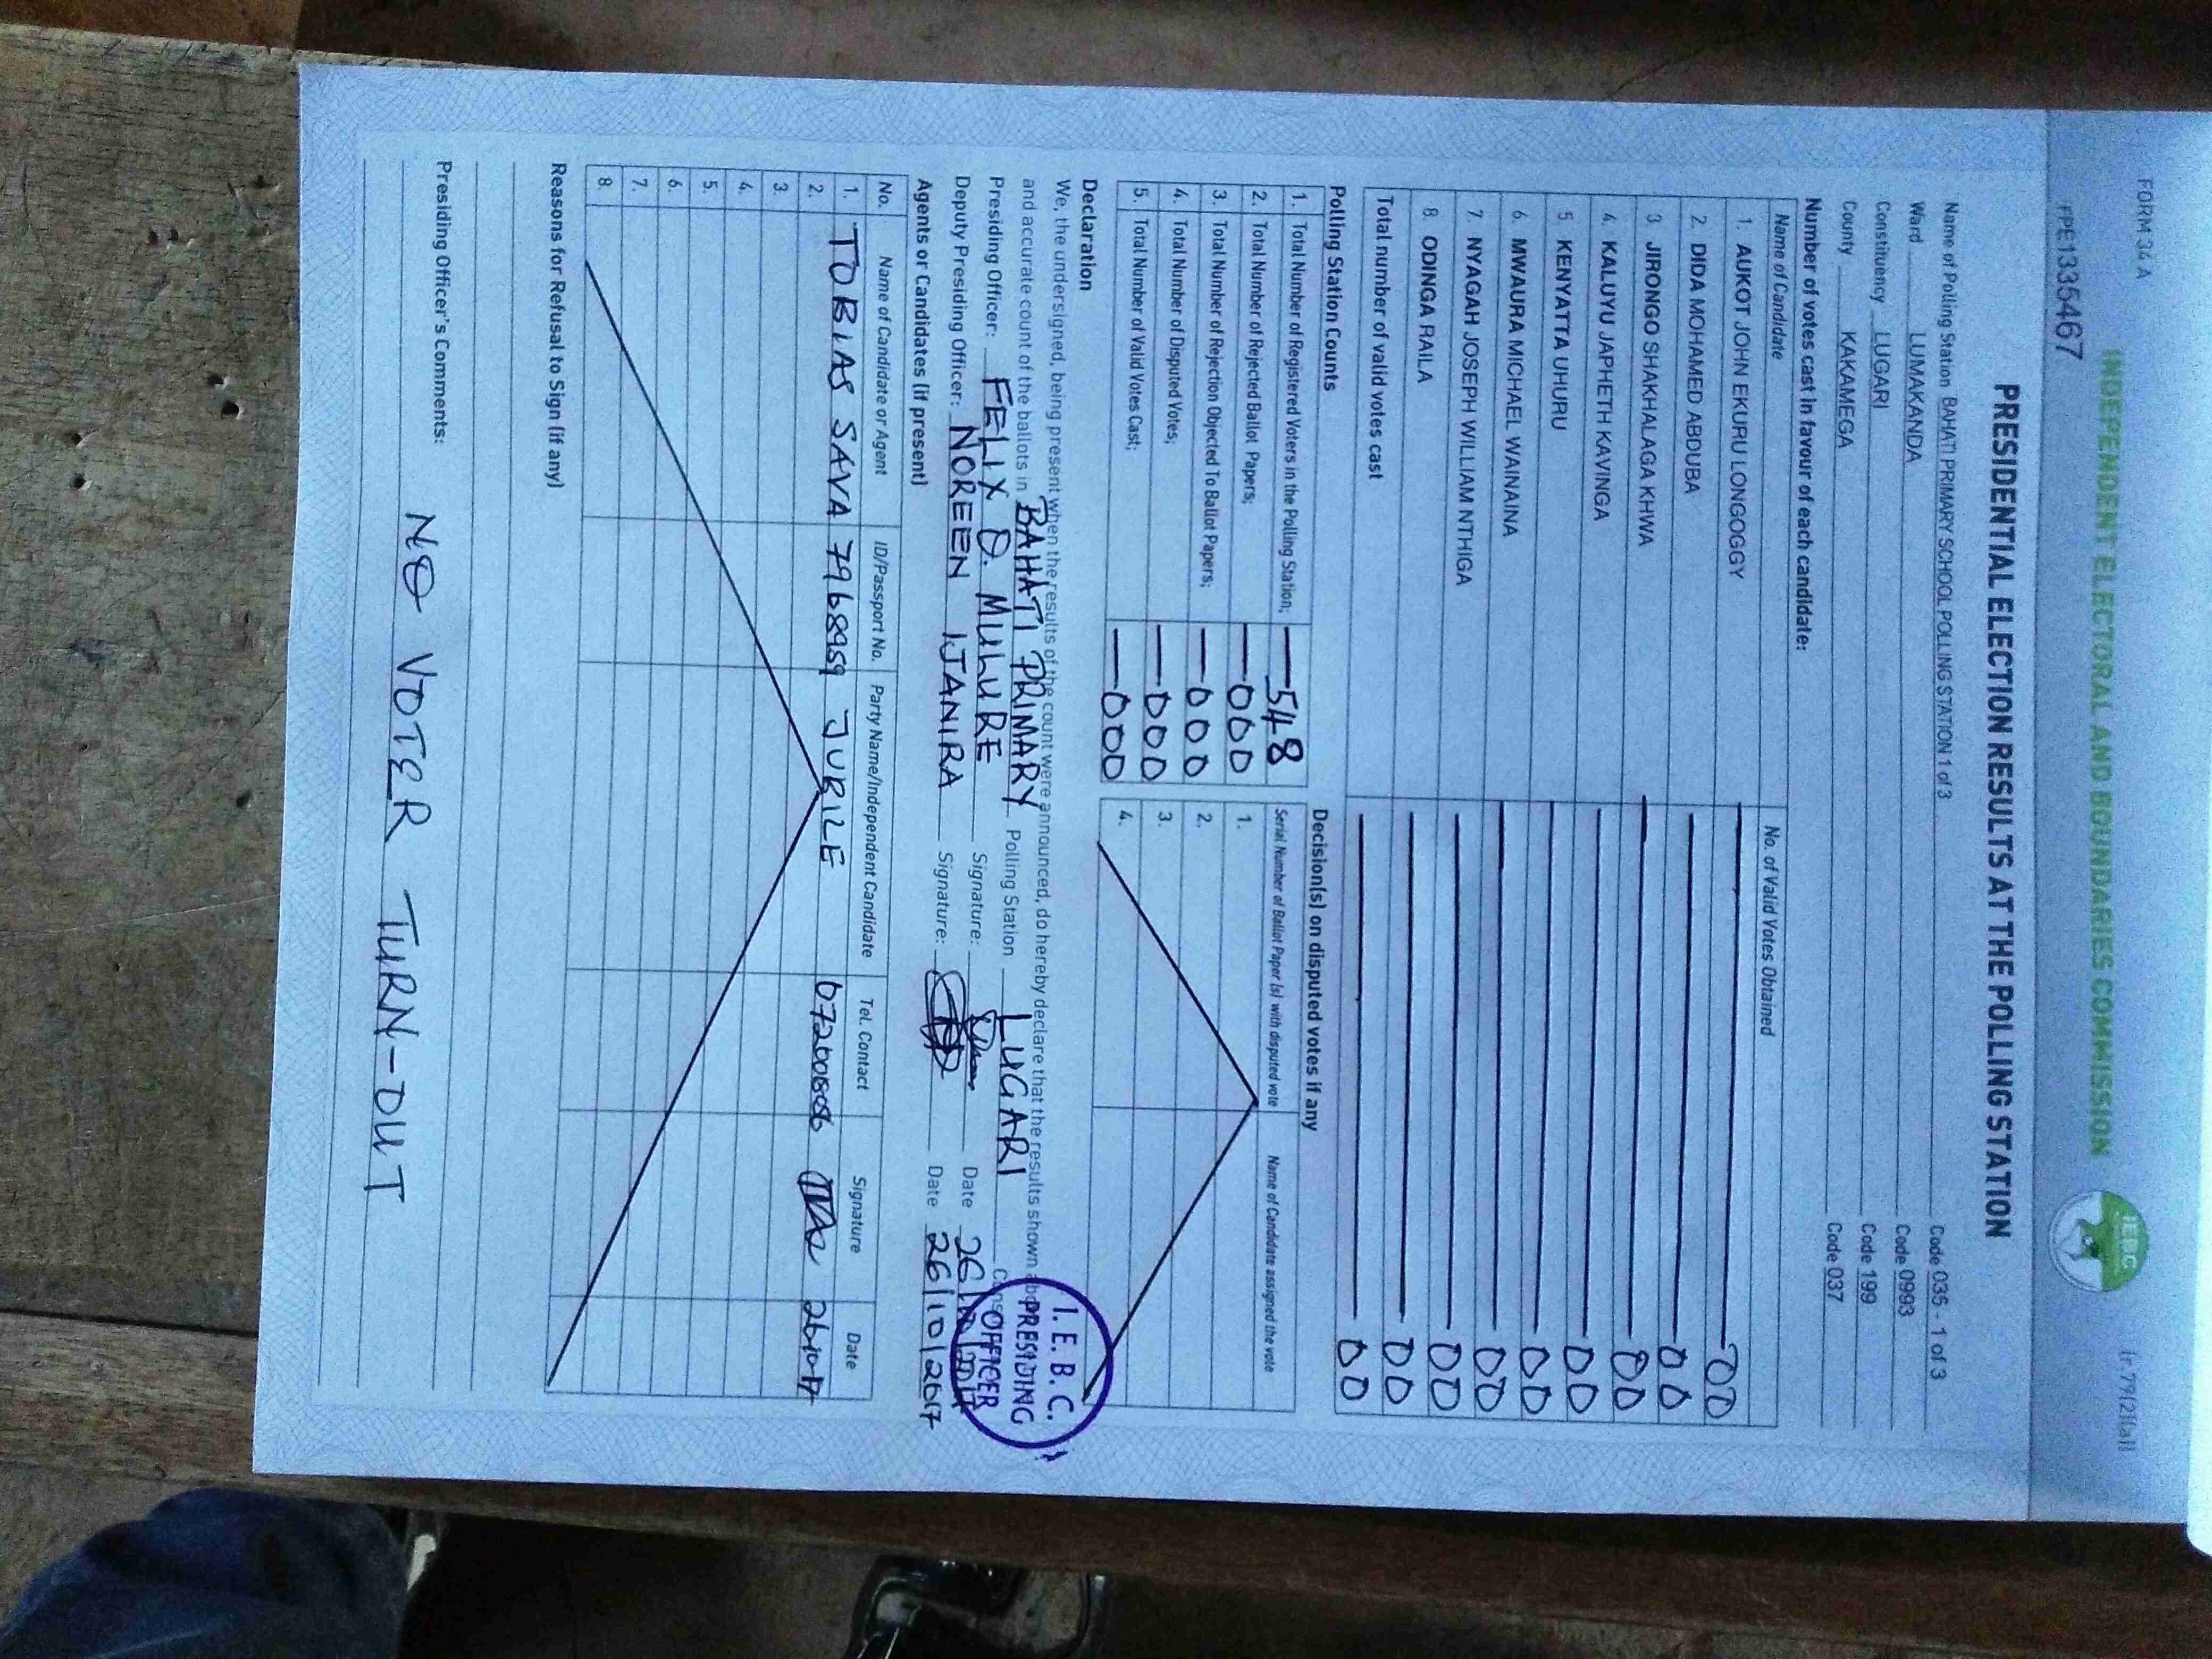 FORM 34 A
(r 79(2)(a))
INDEPENDENT ELECTORAL AND BOUNDARIES COMMISSION
IEBC
FPE135467
PRESIDENTIAL ELECTION RESULTS AT THE POLLING STATION
Name of Polling Station BAHATI PRIMARY SCHOOL POLLING STATION 1 of 3 Code 035 - 1 of 3
Ward LUMAKANDA Code 0993
Constituency LUGARI Code 199
County KAKAMEGA Code 037
Number of votes cast in favour of each candidate:
Name of Candidate No. of Valid Votes Obtained
1. AUKOT JOHN EKURU LONGOGGY 00
2. DIDA MOHAMED ABDUBA 00
3 JIRONGO SHAKHALAGA KHWA 00
4. KALUYU JAPHETH KAVINGA 00
5 KENYATTA UHURU 00
6. MWAURA MICHAEL WAINAINA 00
7. NYAGAH JOSEPH WILLIAM NTHIGA 00
8. ODINGA RAILA 00
Total number of valid votes cast 00
Polling Station Counts
1. Total Number of Registered Voters in the Polling Station; 548
2. Total Number of Rejected Ballot Papers; 000
3. Total Number of Rejection Objected To Ballot Papers; 000
4. Total Number of Disputed Votes; 000
5. Total Number of Valid Votes Cast; 000
Decision(s) on disputed votes if any
Serial Number of Ballot Paper (s) with disputed vote Name of Candidate assigned the vote
1.
2.
3.
4.
Declaration
We, the undersigned, being present when the results of the count were announced, do hereby declare that the results shown
and accurate count of the ballots in BAHATI PRIMARY Polling Station LUGARI
Presiding Officer: FELIX O. MULURE Signature: Date 26/10/2017
Deputy Presiding Officer: NOREEN Signature: Date 26/10/2017
I. E. B. C.
PRESIDING
OFFICER
Agents or Candidates (if present)
No. Name of Candidate or Agent ID/Passport No. Party Name/Independent Candidate Tel. Contact Signature Date
1. TOBIAS SAVA 7968959 JUBILE
2.
3.
4.
5.
6.
7.
8.
Reasons for Refusal to Sign (if any)
Presiding Officer's Comments:
NO VOTER TURN-OUT